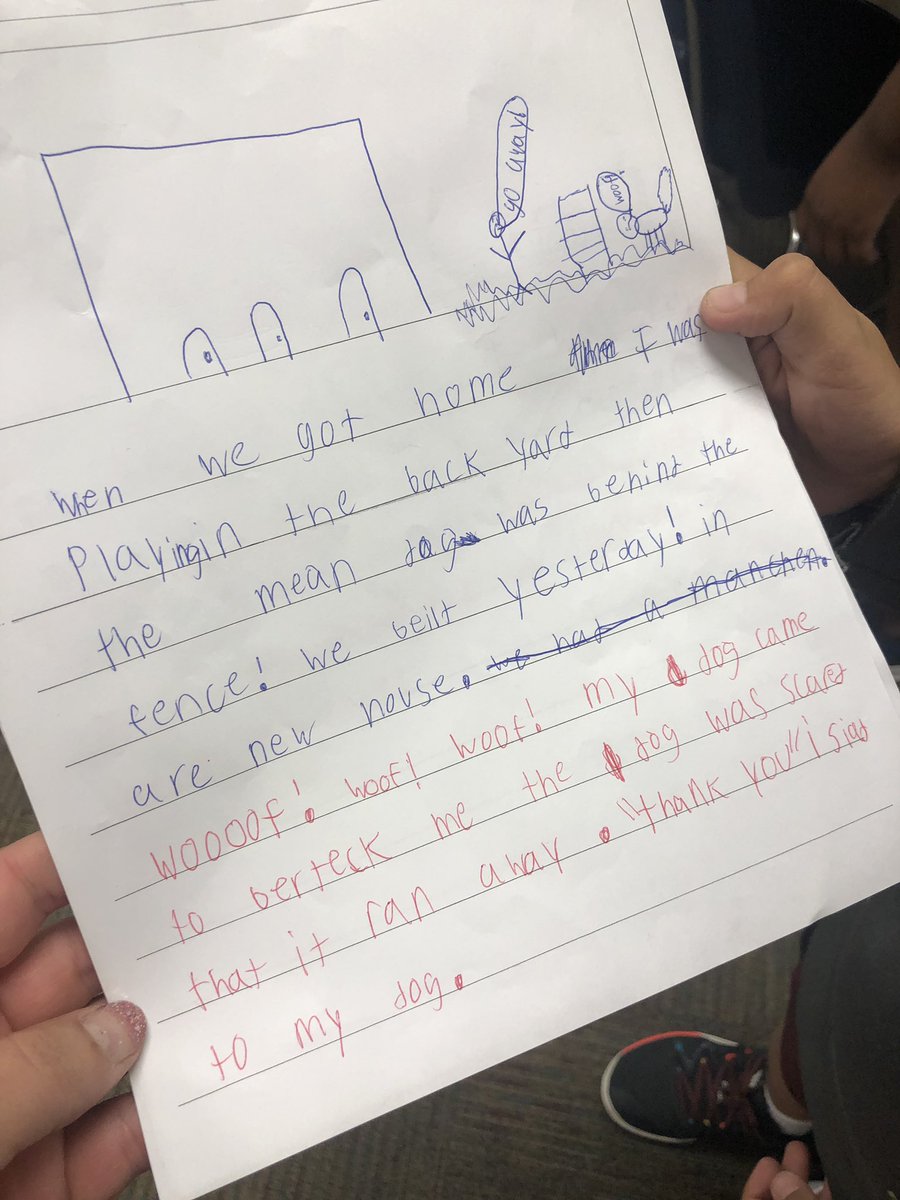 go away!
woof
when we got home I was
Playingin the back yard then
the mean dog was behint the
fence! we beilt yesterday! in
are new house. we hat a manchen.
woooof! woof! woof! my dog came
to berteck me the dog was scaret
that it ran away. "thank you" i siad
to my dog.